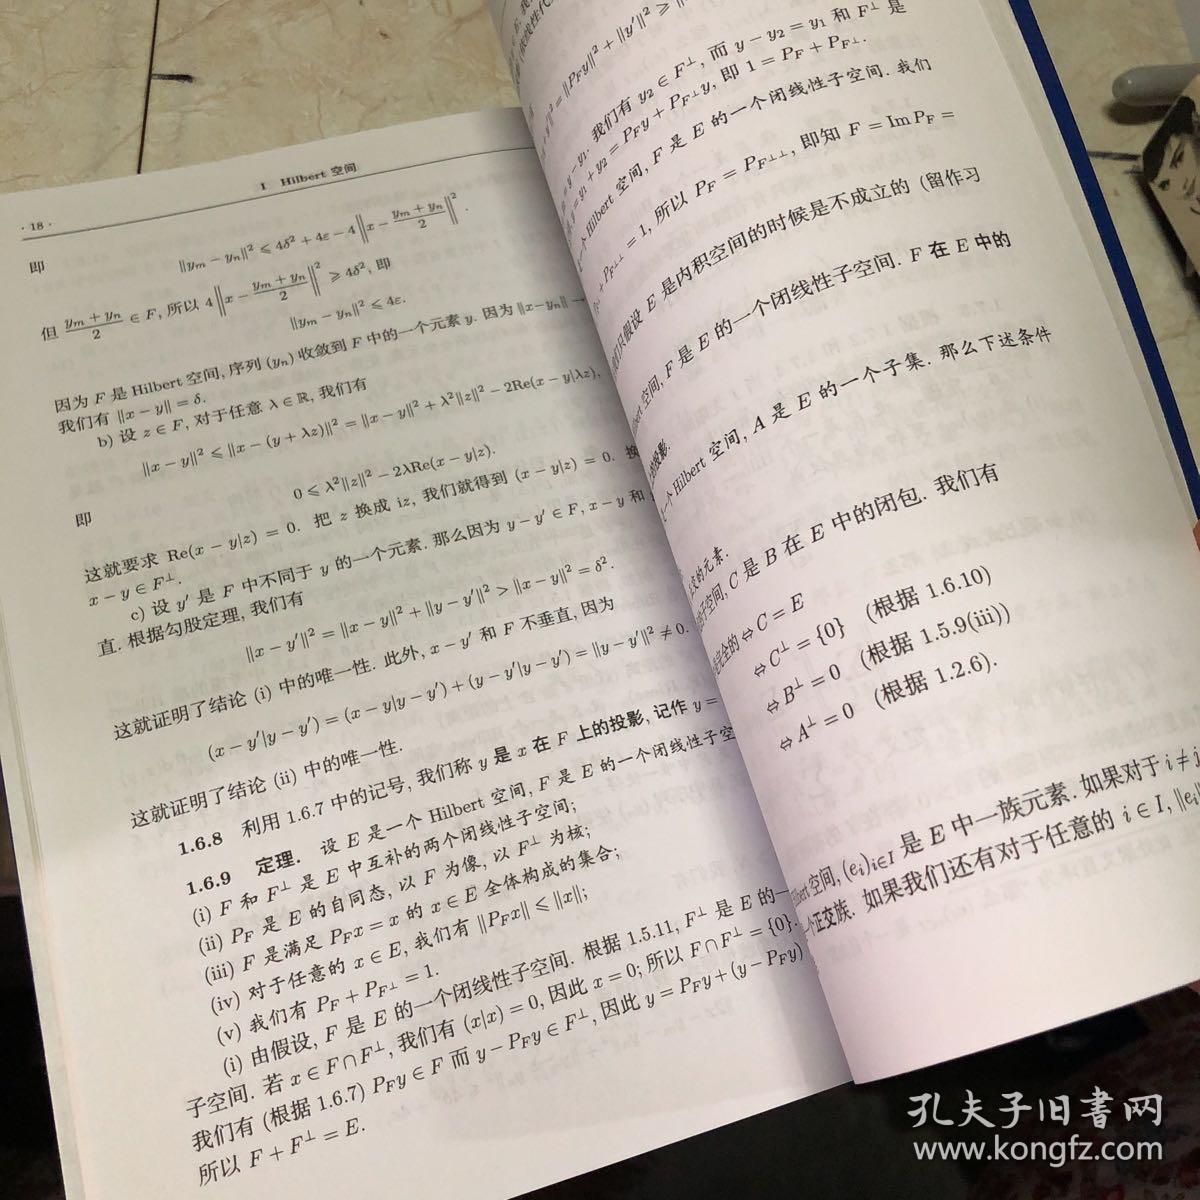 · 18 ·
I Hilbert 空间
即
‖yₘ − yₙ‖² ⩽ 4δ² + 4ε − 4 ‖x − (yₘ + yₙ)/2‖².
但 (yₘ + yₙ)/2 ∈ F, 所以 4 ‖x − (yₘ + yₙ)/2‖² ⩾ 4δ², 即
‖yₘ − yₙ‖² ⩽ 4ε.
因为 F 是 Hilbert 空间, 序列 (yₙ) 收敛到 F 中的一个元素 y. 因为 ‖x−yₙ‖ →
我们有 ‖x − y‖ = δ.
b) 设 z ∈ F, 对于任意 λ ∈ ℝ, 我们有
‖x − y‖² ⩽ ‖x − (y + λz)‖² = ‖x − y‖² + λ²‖z‖² − 2Re(x − y|λz),
即
0 ⩽ λ²‖z‖² − 2λRe(x − y|z).
这就要求 Re(x − y|z) = 0. 把 z 换成 iz, 我们就得到 (x − y|z) = 0. 换
x − y ∈ F⊥.
c) 设 y′ 是 F 中不同于 y 的一个元素. 那么因为 y − y′ ∈ F, x − y 和
直. 根据勾股定理, 我们有
‖x − y′‖² = ‖x − y‖² + ‖y − y′‖² > ‖x − y‖² = δ².
这就证明了结论 (i) 中的唯一性. 此外, x − y′ 和 F 不垂直, 因为
(x − y′|y − y′) = (x − y|y − y′) + (y − y′|y − y′) = ‖y − y′‖² ≠ 0.
这就证明了结论 (ii) 中的唯一性.
1.6.8 利用 1.6.7 中的记号, 我们称 y 是 x 在 F 上的投影, 记作 y =
1.6.9 定理. 设 E 是一个 Hilbert 空间, F 是 E 的一个闭线性子空
(i) F 和 F⊥ 是 E 中互补的两个闭线性子空间;
(ii) P_F 是 E 的自同态, 以 F 为像, 以 F⊥ 为核;
(iii) F 是满足 P_F x = x 的 x ∈ E 全体构成的集合;
(iv) 对于任意的 x ∈ E, 我们有 ‖P_F x‖ ⩽ ‖x‖;
(v) 我们有 P_F + P_F⊥ = 1.
(i) 由假设, F 是 E 的一个闭线性子空间. 根据 1.5.11, F⊥ 是 E 的一
子空间. 若 x ∈ F ∩ F⊥, 我们有 (x|x) = 0, 因此 x = 0; 所以 F ∩ F⊥ = {0}.
我们有 (根据 1.6.7) P_F y ∈ F 而 y − P_F y ∈ F⊥, 因此 y = P_F y + (y − P_F y)
所以 F + F⊥ = E.
‖P_F y‖² + ‖y′‖² ⩾
= y − y₁. 我们有 y₂ ∈ F⊥, 而 y − y₂ = y₁ 和 F⊥ 是
= y₁ + y₂ = P_F y + P_F⊥ y, 即 1 = P_F + P_F⊥.
一个 Hilbert 空间, F 是 E 的一个闭线性子空间. 我们
+ P_F⊥⊥ = 1, 所以 P_F = P_F⊥⊥, 即知 F = Im P_F =
只假设 E 是内积空间的时候是不成立的 (留作习
空间, F 是 E 的一个闭线性子空间. F 在 E 中的
投影.
一个 Hilbert 空间, A 是 E 的一个子集. 那么下述条件
正交的元素.
子空间, C 是 B 在 E 中的闭包. 我们有
完全的 ⇔ C = E
⇔ C⊥ = {0} (根据 1.6.10)
⇔ B⊥ = 0 (根据 1.5.9(iii))
⇔ A⊥ = 0 (根据 1.2.6).
空间, (eᵢ)ᵢ∈I 是 E 中一族元素. 如果对于 i ≠ j
个正交族. 如果我们还有对于任意的 i ∈ I, ‖eᵢ‖
孔夫子旧书网
www.kongfz.com